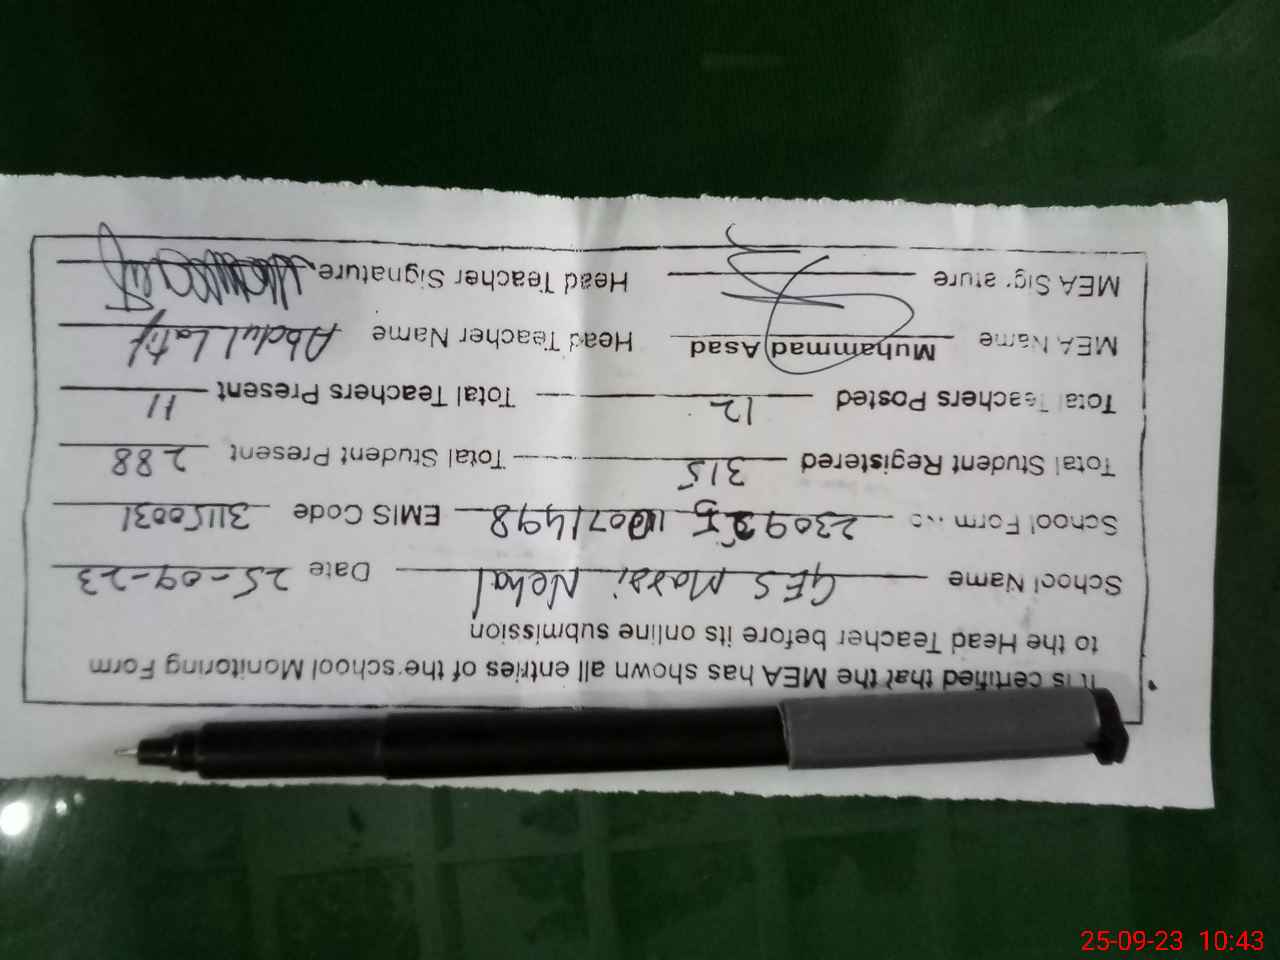 It is certified that the MEA has shown all entries of the school Monitoring Form
to the Head Teacher before its online submission
School Name GES Massi Nehal Date 25-09-23
School Form No EMIS Code 31150031
Total Student Registered 315 Total Student Present 288
Total Teachers Posted 12 Total Teachers Present 11
MEA Name Muhammad Asad Head Teacher Name Abdul Latif
MEA Signature Head Teacher Signature
25-09-23 10:43